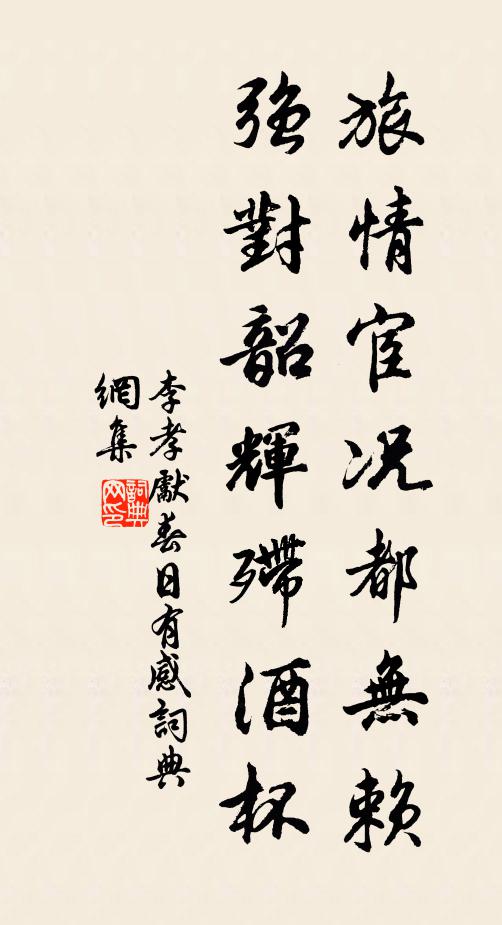 旅情宦况都無賴
強對韶輝殢酒杯
李孝獻春日有感詞典
網集
詞典
网印